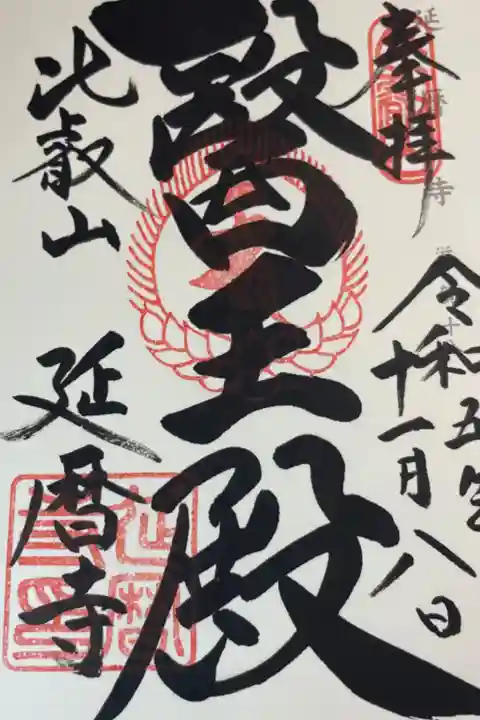 奉拝
令和五年
十一月八日
醫王殿
比叡山
延暦寺
延暦寺